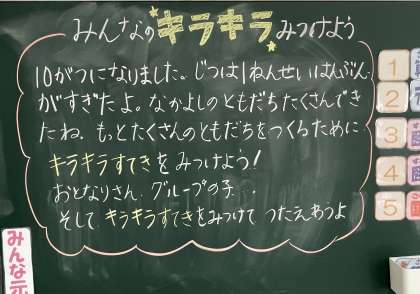 みんなのキラキラみつけよう
10がつになりました。じつは1ねんせいはんぶん
がすぎたよ。なかよしのともだちたくさんでき
たね。もっとたくさんのともだちをつくるために
キラキラすてきをみつけよう!
おとなりさん、グループの子…
そして キラキラすてきをみつけて つたえあうよ
1
2
3
4
5
みんな元